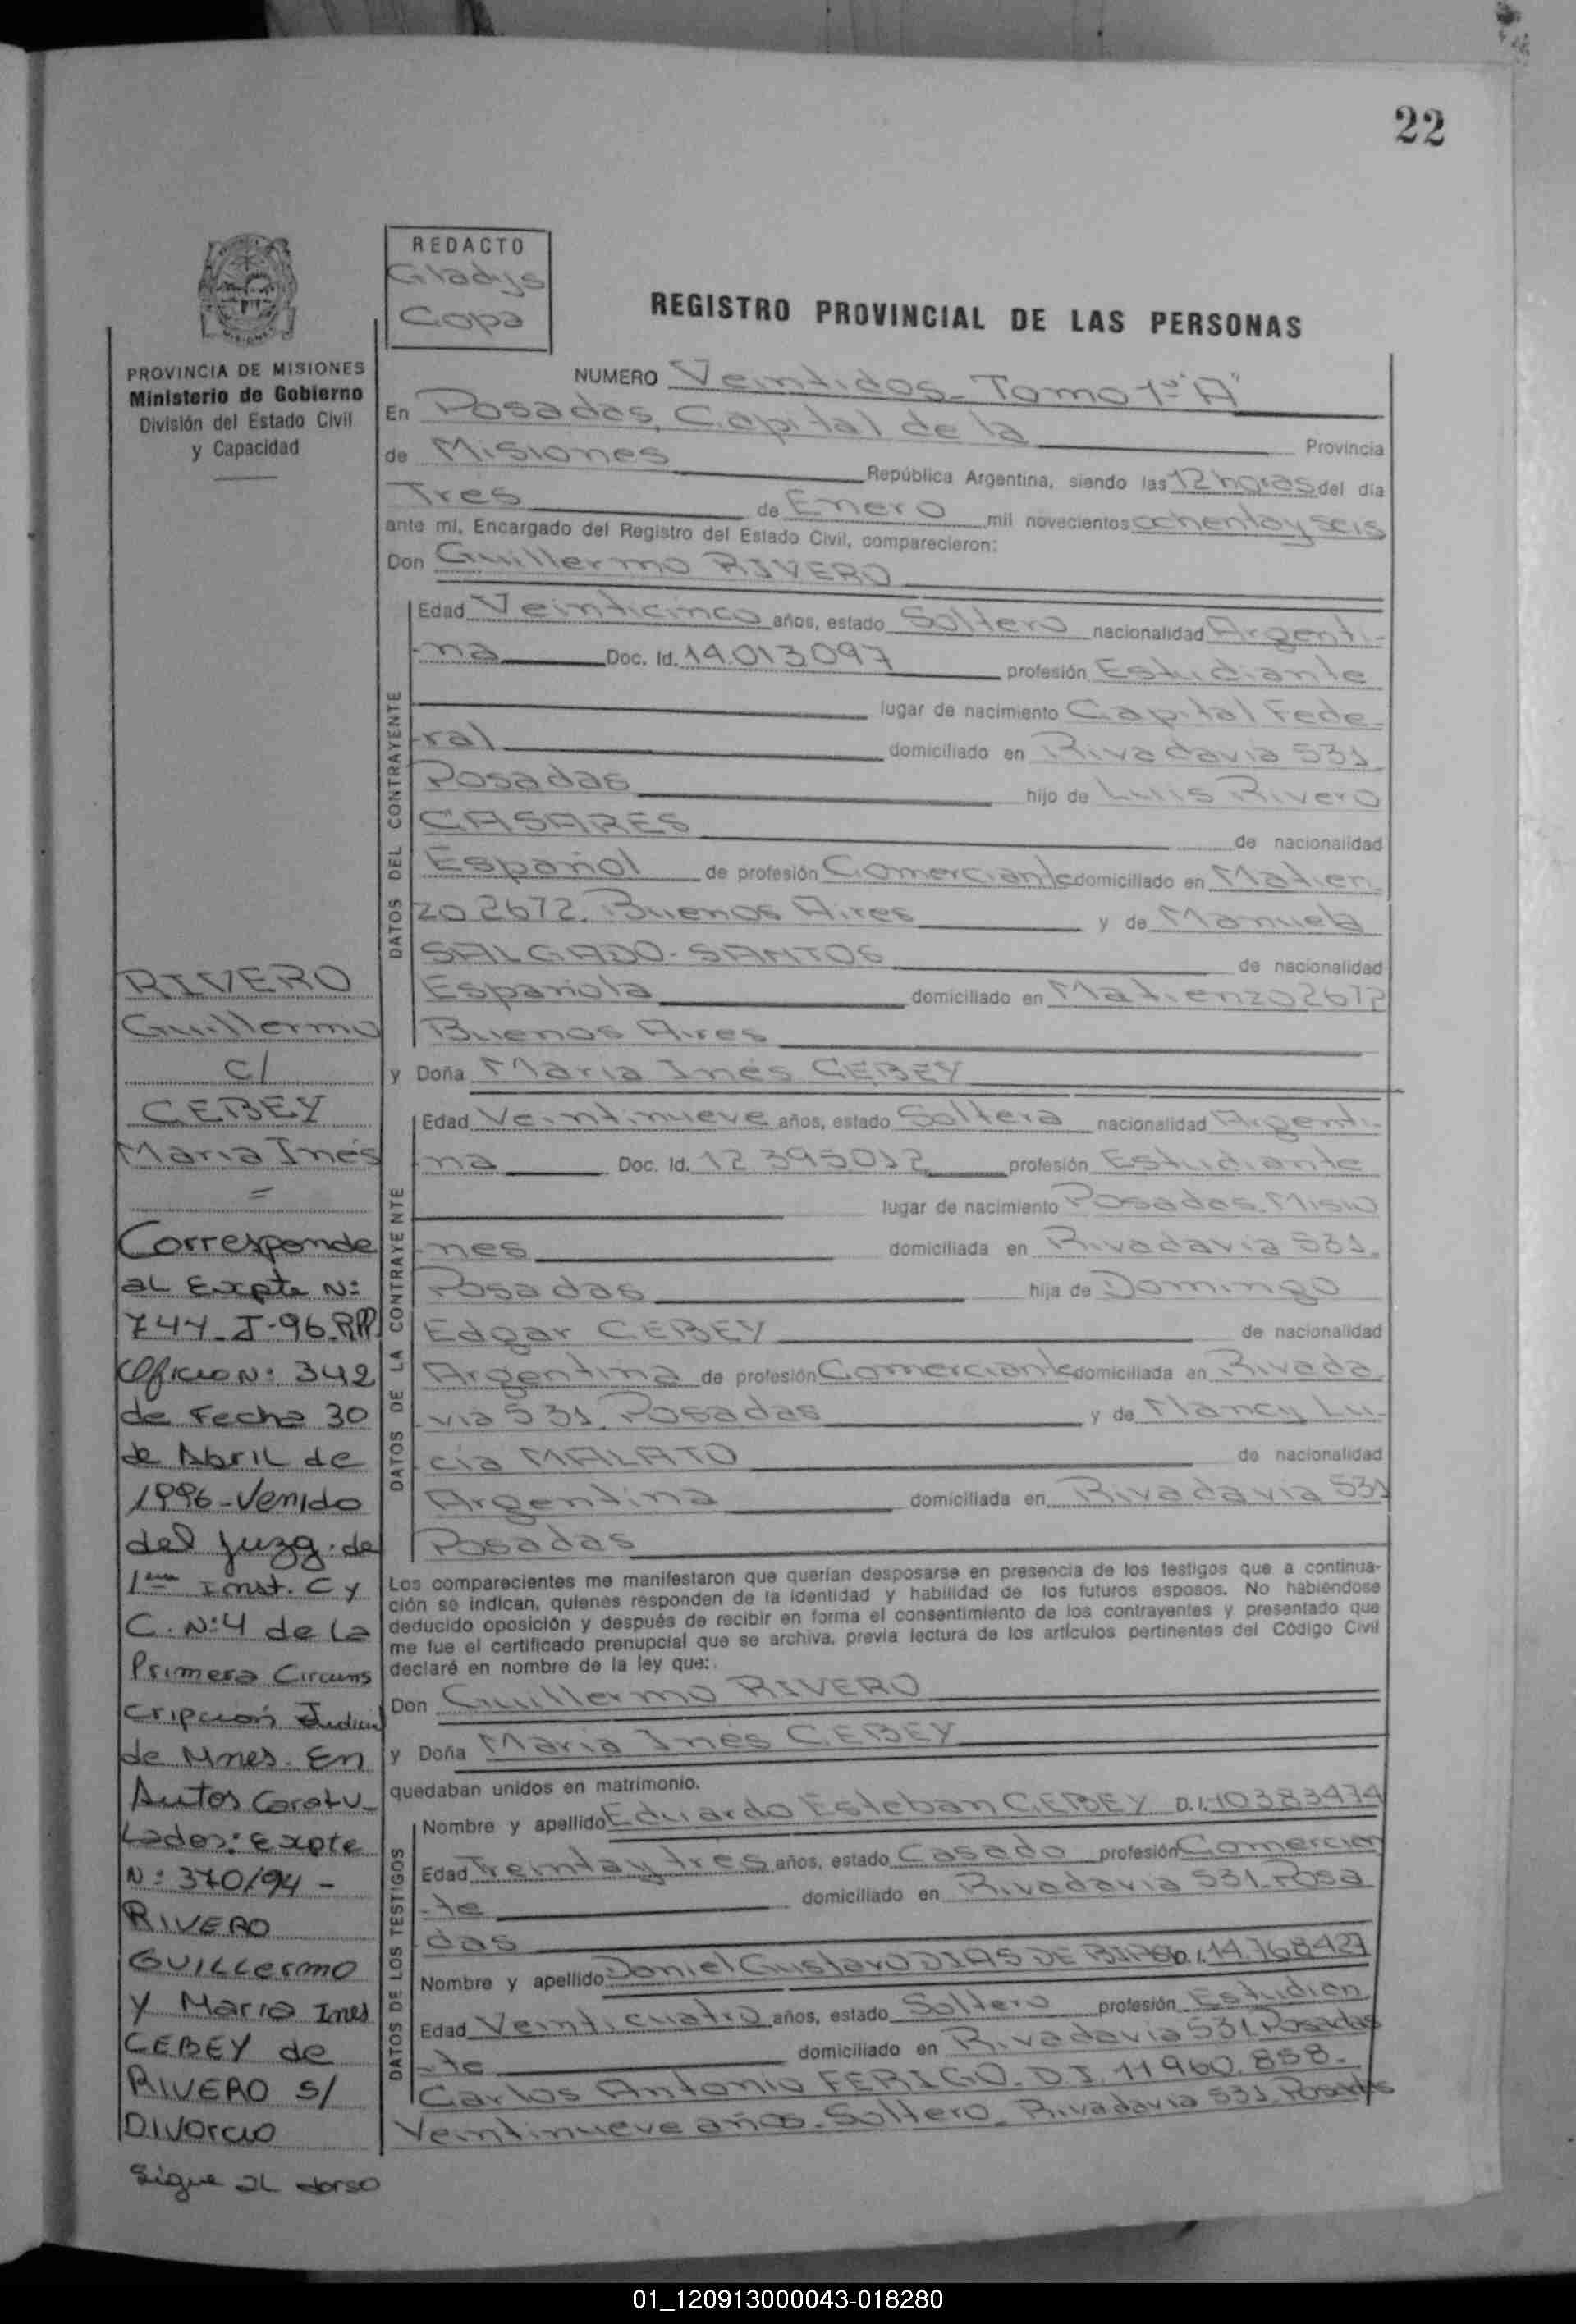 22
REDACTO
Gladys
Copa
REGISTRO PROVINCIAL DE LAS PERSONAS
PROVINCIA DE MISIONES
Ministerio de Gobierno
División del Estado Civil
y Capacidad
NUMERO Veintidos - Tomo 1º "A"
En Posadas, Capital de la Provincia
de Misiones República Argentina, siendo las 12 horas del día
Tres de Enero mil novecientos ochenta y seis
ante mí, Encargado del Registro del Estado Civil, comparecieron:
Don Guillermo RIVERO
DATOS DEL CONTRAYENTE
Edad Veinticinco años, estado Soltero nacionalidad Argenti-
-na Doc. Id. 14.013.097 profesión Estudiante
lugar de nacimiento Capital Fede-
-ral domiciliado en Rivadavia 531
Posadas hijo de Luis Rivero
CASARES de nacionalidad
Español de profesión Comerciante domiciliado en Matien
zo 2672. Buenos Aires y de Manuela
SALGADO-SANTOS de nacionalidad
Española domiciliado en Matienzo 2672
Buenos Aires
y Doña María Inés CEBEY
DATOS DE LA CONTRAYENTE
Edad Veintinueve años, estado Soltera nacionalidad Argenti-
-na Doc. Id. 12.395.012 profesión Estudiante
lugar de nacimiento Posadas. Misio
-nes domiciliada en Rivadavia 531.
Posadas hija de Domingo
Edgar CEBEY de nacionalidad
Argentina de profesión Comerciante domiciliada en Rivada
-via 531. Posadas y de Nancy Lu-
-cía MALATO de nacionalidad
Argentina domiciliada en Rivadavia 531
Posadas
Los comparecientes me manifestaron que querían desposarse en presencia de los testigos que a continua-
ción se indican, quienes responden de la identidad y habilidad de los futuros esposos. No habiéndose
deducido oposición y después de recibir en forma el consentimiento de los contrayentes y presentado que
me fue el certificado prenupcial que se archiva, previa lectura de los artículos pertinentes del Código Civil
declaré en nombre de la ley que:
Don Guillermo RIVERO
y Doña María Inés CEBEY
quedaban unidos en matrimonio.
DATOS DE LOS TESTIGOS
Nombre y apellido Eduardo Esteban CEBEY D.I. 10383474
Edad Treinta y tres años, estado Casado profesión Comercian
-te domiciliado en Rivadavia 531. Posa
das
Nombre y apellido Daniel Gustavo DIAS DE D.I. 14.768427
Edad Veinticuatro años, estado Soltero profesión Estudian
-te domiciliado en Rivadavia 531. Posadas
Carlos Antonio FERIGO. D.I. 11.960.858.
Veintinueve años. Soltero. Rivadavia 531. Posadas
RIVERO
Guillermo
c/
CEBEY
María Inés
=
Corresponde
al Expte N:
744-I-96.RPP
Oficio N: 342
de Fecha 30
de Abril de
1996-Venido
del Juzg. de
1era Inst. C y
C. N:4 de la
Primera Circuns
cripción Judicial
de Mnes. En
Autos Caratu-
lados: Expte
N: 370/94 -
RIVERO
GUILLERMO
y María Ines
CEBEY de
RIVERO s/
Divorcio
Sigue al dorso
01_120913000043-018280